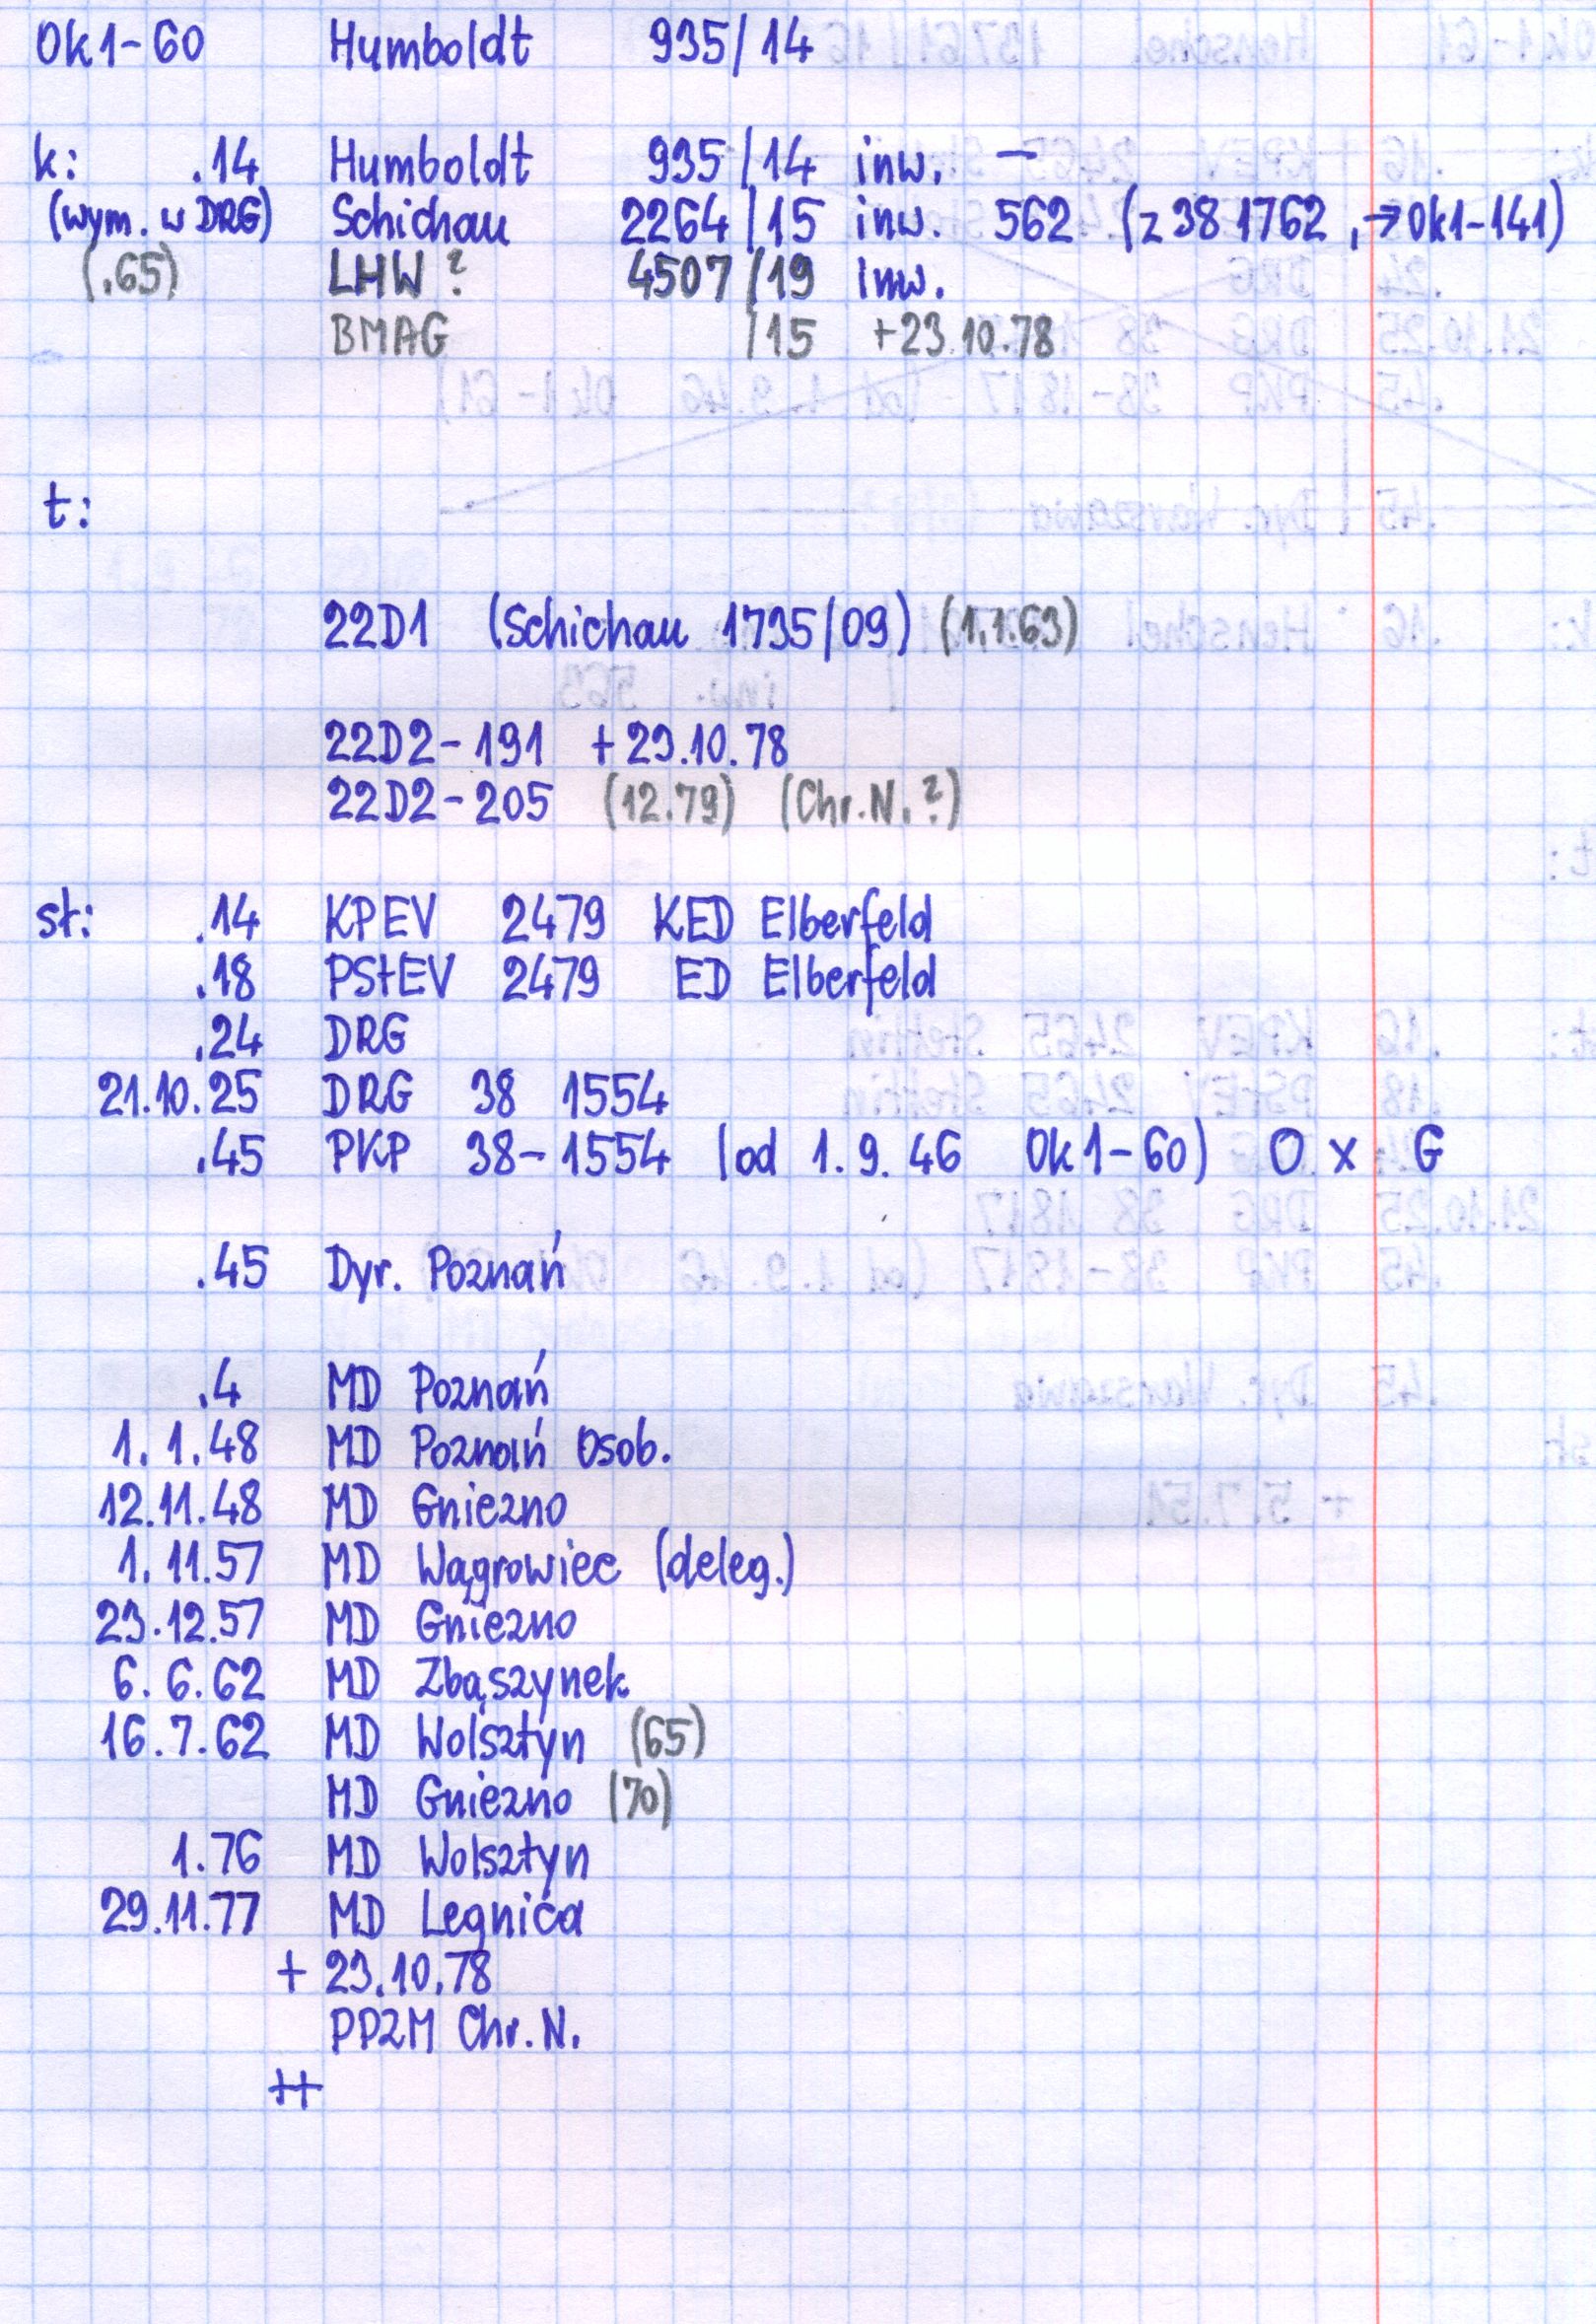 Ok1-60 Humboldt 935/14
k: .14 Humboldt 935/14 inw. —
(wym. w DRG) Schichau 2264/15 inw. 562 (z 38 1762, → Ok1-141)
(.65) LHW ? 4507/19 inw.
BMAG /15 +23.10.78
t:
22D1 (Schichau 1735/09) (1.1.63)
22D2-191 +23.10.78
22D2-205 (12.79) (Chr.N.?)
st: .14 KPEV 2479 KED Elberfeld
.18 PStEV 2479 ED Elberfeld
.24 DRG
21.10.25 DRG 38 1554
.45 PKP 38-1554 (od 1.9.46 Ok1-60) O x G
.45 Dyr. Poznań
.4 MD Poznań
1.1.48 MD Poznań Osob.
12.11.48 MD Gniezno
1.11.57 MD Wągrowiec (deleg.)
23.12.57 MD Gniezno
6.6.62 MD Zbąszynek
16.7.62 MD Wolsztyn (65)
MD Gniezno (70)
1.76 MD Wolsztyn
29.11.77 MD Legnica
+ 23.10.78
PPZM Chr.N.
++